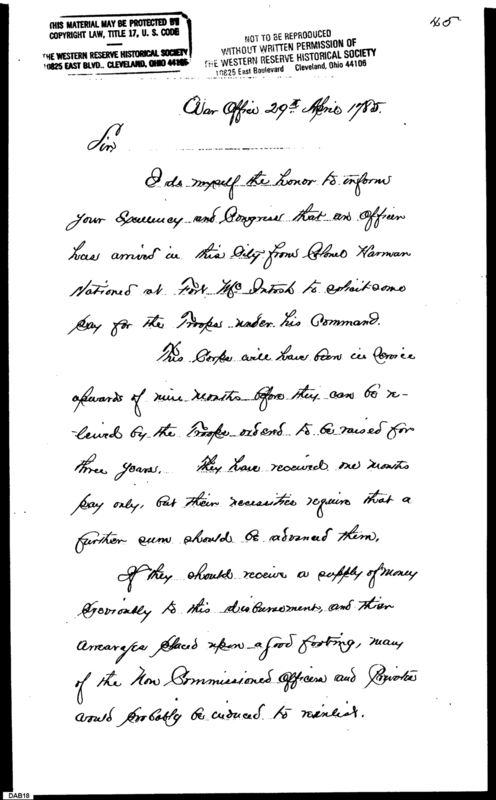 THIS MATERIAL MAY BE PROTECTED BY
COPYRIGHT LAW, TITLE 17, U. S. CODE
THE WESTERN RESERVE HISTORICAL SOCIETY
10825 EAST BLVD., CLEVELAND, OHIO 44106
NOT TO BE REPRODUCED
WITHOUT WRITTEN PERMISSION OF
THE WESTERN RESERVE HISTORICAL SOCIETY
10825 East Boulevard Cleveland, Ohio 44106
45
War Office 29th April 1785.
Sir
I do myself the honor to inform
your Excellency and Congress that an Officer
has arrived in this City from Colonel Harmar
Stationed at Fort McIntosh to solicit some
pay for the Troops under his Command.
This Corps will have been in Service
upwards of nine Months before they can be re-
-leived by the Troops ordered to be raised for
three years. They have received one months
pay only, but their necessities require that a
further sum should be advanced them.
If they should receive a supply of Money
previously to this disbursement, and their
arrearages placed upon a good footing, many
of the Non Commissioned Officers and Privates
would probably be induced to reinlist.
DAB18